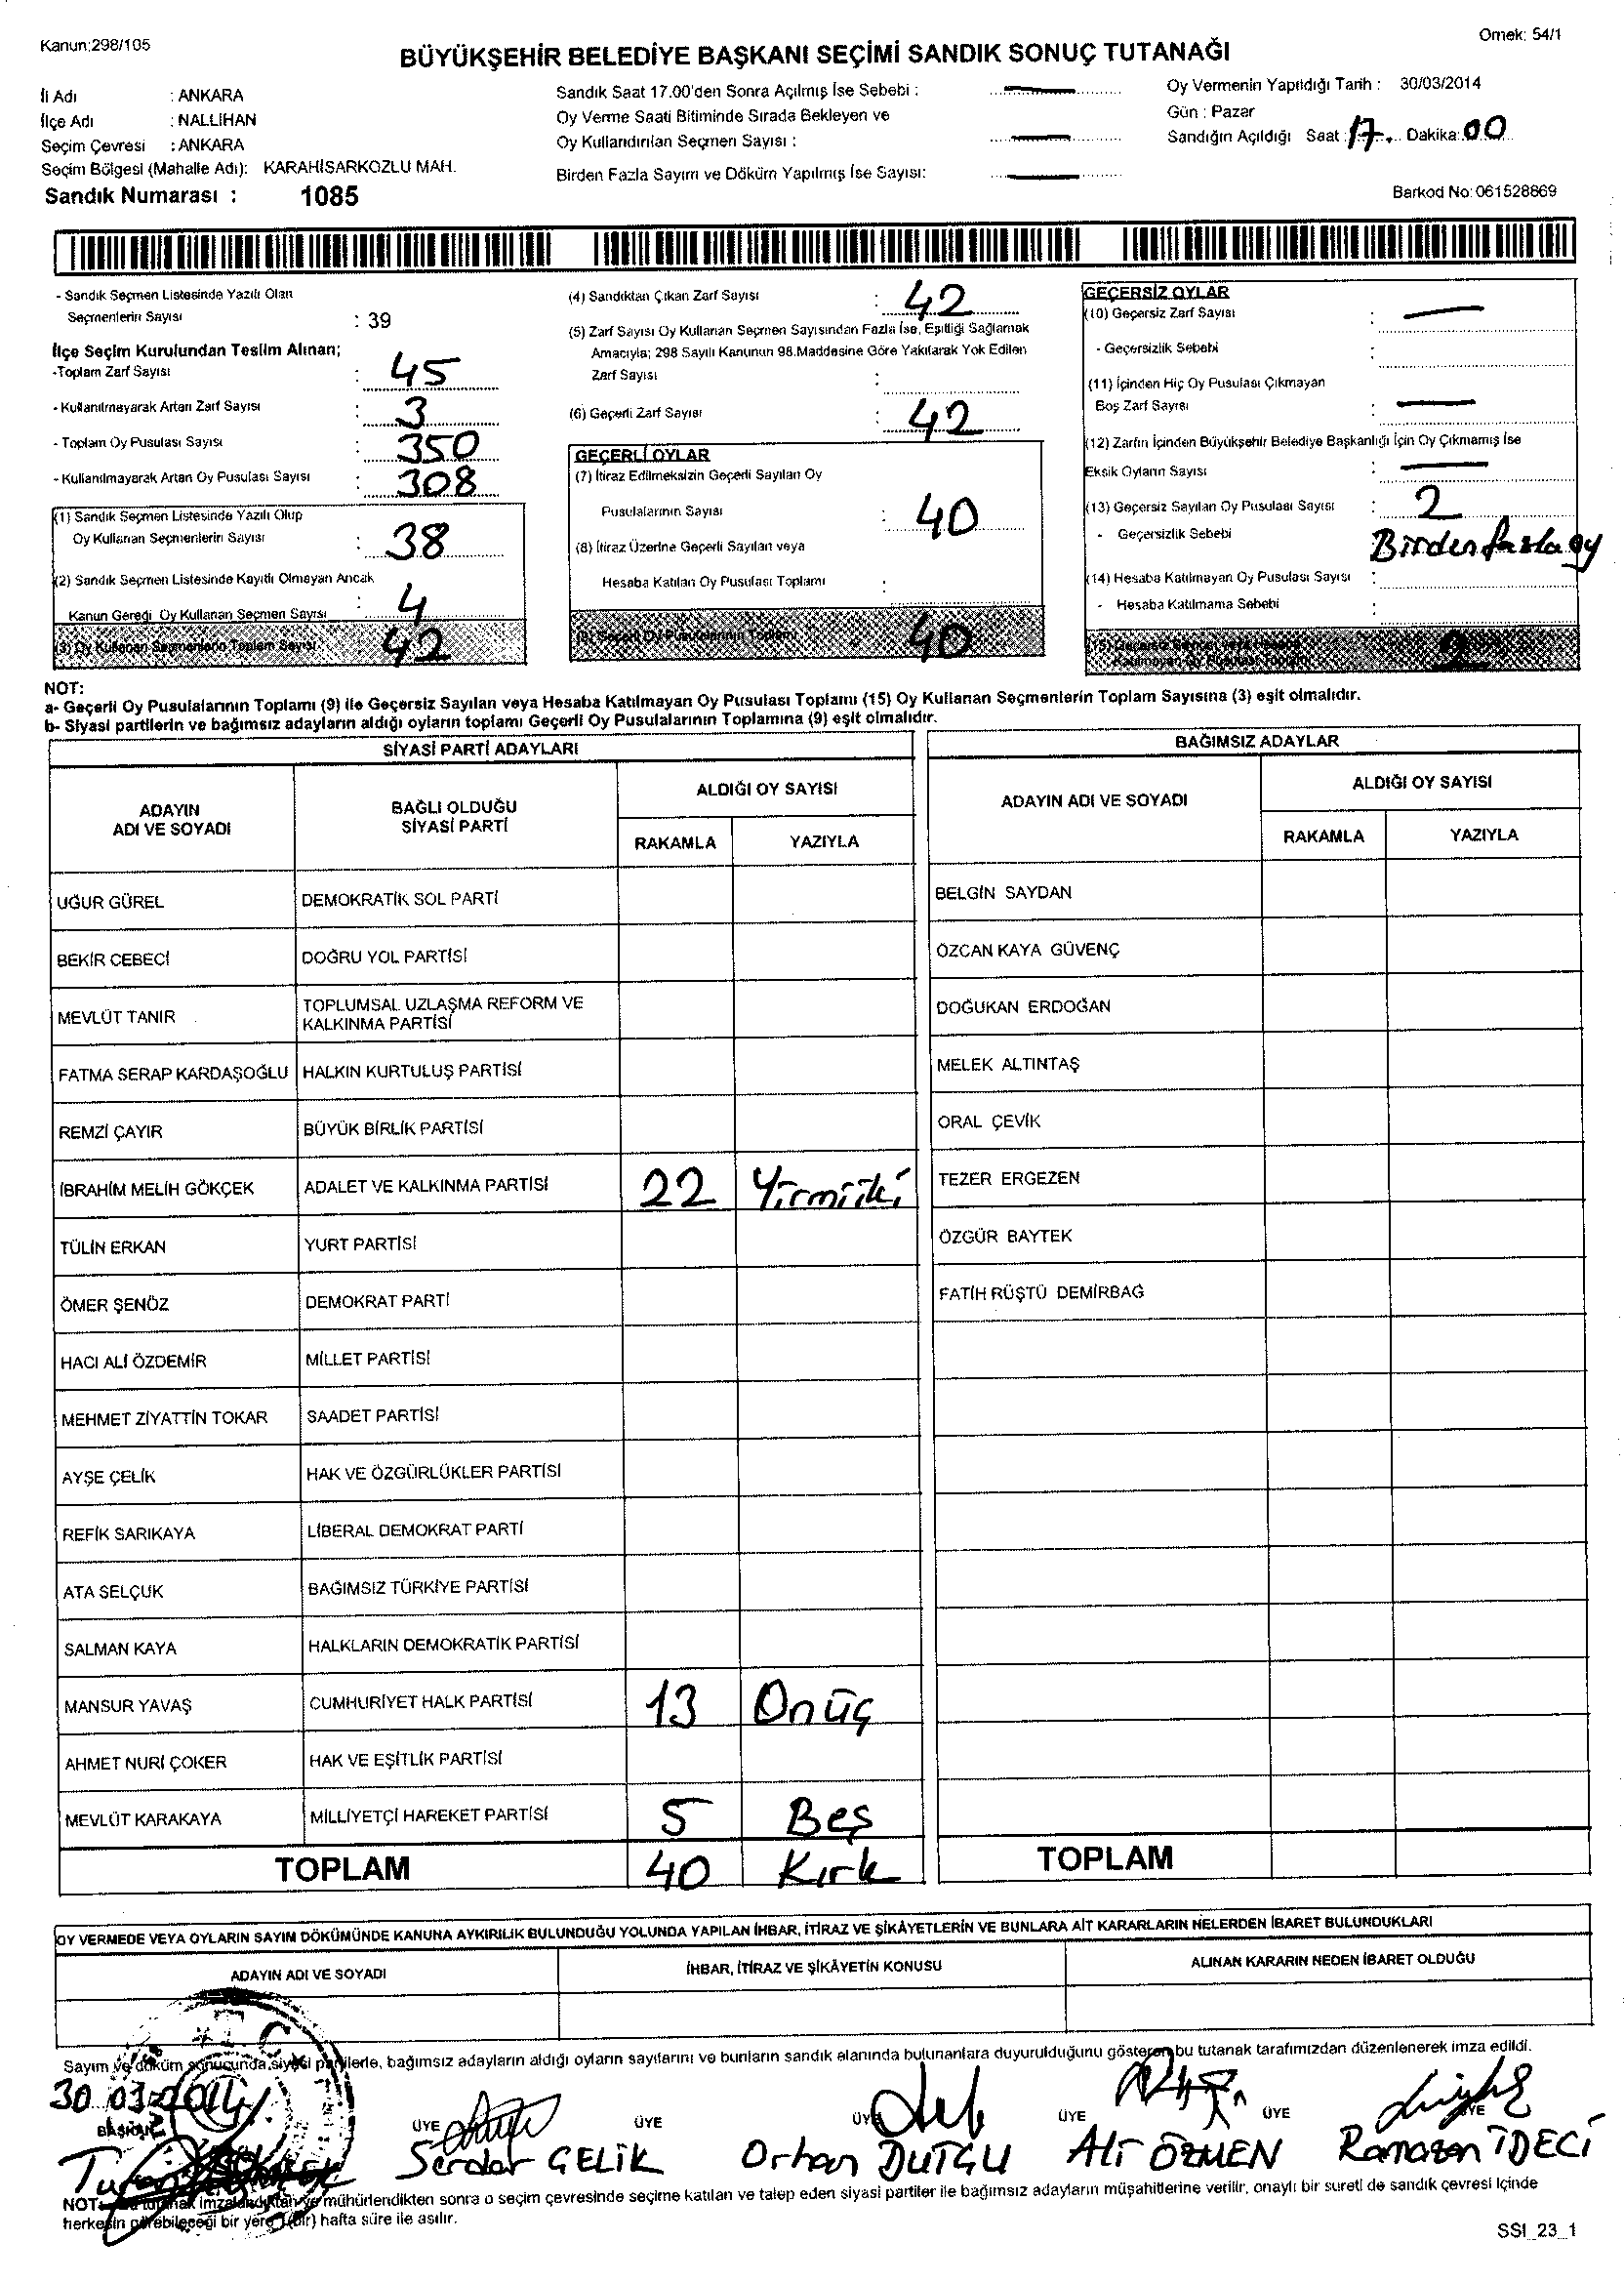 Kanun:298/105
Örnek: 54/1
BÜYÜKŞEHİR BELEDİYE BAŞKANI SEÇİMİ SANDIK SONUÇ TUTANAĞI
İl Adı : ANKARA
İlçe Adı : NALLIHAN
Seçim Çevresi : ANKARA
Seçim Bölgesi (Mahalle Adı): KARAHİSARKOZLU MAH.
Sandık Numarası : 1085
Sandık Saat 17.00'den Sonra Açılmış İse Sebebi :
Oy Verme Saati Bitiminde Sırada Bekleyen ve
Oy Kullandırılan Seçmen Sayısı :
Birden Fazla Sayım ve Döküm Yapılmış İse Sayısı:
Oy Vermenin Yapıldığı Tarih : 30/03/2014
Gün : Pazar
Sandığın Açıldığı Saat : 17 Dakika: 00
Barkod No: 061528869
- Sandık Seçmen Listesinde Yazılı Olan
Seçmenlerin Sayısı : 39
İlçe Seçim Kurulundan Teslim Alınan;
-Toplam Zarf Sayısı : 45
- Kullanılmayarak Artan Zarf Sayısı : 3
- Toplam Oy Pusulası Sayısı : 350
- Kullanılmayarak Artan Oy Pusulası Sayısı : 308
(1) Sandık Seçmen Listesinde Yazılı Olup
Oy Kullanan Seçmenlerin Sayısı : 38
(2) Sandık Seçmen Listesinde Kayıtlı Olmayan Ancak
Kanun Gereği Oy Kullanan Seçmen Sayısı : 4
(3) Oy Kullanan Seçmenlerin Toplam Sayısı : 42
(4) Sandıktan Çıkan Zarf Sayısı : 42
(5) Zarf Sayısı Oy Kullanan Seçmen Sayısından Fazla İse, Eşitliği Sağlamak
Amacıyla; 298 Sayılı Kanunun 98.Maddesine Göre Yakılarak Yok Edilen
Zarf Sayısı :
(6) Geçerli Zarf Sayısı : 42
GEÇERLİ OYLAR
(7) İtiraz Edilmeksizin Geçerli Sayılan Oy
Pusulalarının Sayısı : 40
(8) İtiraz Üzerine Geçerli Sayılan veya
Hesaba Katılan Oy Pusulası Toplamı :
(9) Geçerli Oy Pusulalarının Toplamı : 40
GEÇERSİZ OYLAR
(10) Geçersiz Zarf Sayısı :
- Geçersizlik Sebebi :
(11) İçinden Hiç Oy Pusulası Çıkmayan
Boş Zarf Sayısı :
(12) Zarfın İçinden Büyükşehir Belediye Başkanlığı İçin Oy Çıkmamış İse
Eksik Oyların Sayısı :
(13) Geçersiz Sayılan Oy Pusulası Sayısı : 2
- Geçersizlik Sebebi Birden fazla oy
(14) Hesaba Katılmayan Oy Pusulası Sayısı :
- Hesaba Katılmama Sebebi :
(15) Geçersiz Sayılan veya Hesaba
Katılmayan Oy Pusulası Toplamı : 2
NOT:
a- Geçerli Oy Pusulalarının Toplamı (9) ile Geçersiz Sayılan veya Hesaba Katılmayan Oy Pusulası Toplamı (15) Oy Kullanan Seçmenlerin Toplam Sayısına (3) eşit olmalıdır.
b- Siyasi partilerin ve bağımsız adayların aldığı oyların toplamı Geçerli Oy Pusulalarının Toplamına (9) eşit olmalıdır.
SİYASİ PARTİ ADAYLARI
ADAYIN ADI VE SOYADI
BAĞLI OLDUĞU SİYASİ PARTİ
ALDIĞI OY SAYISI
RAKAMLA YAZIYLA
UĞUR GÜREL DEMOKRATİK SOL PARTİ
BEKİR CEBECİ DOĞRU YOL PARTİSİ
MEVLÜT TANIR TOPLUMSAL UZLAŞMA REFORM VE KALKINMA PARTİSİ
FATMA SERAP KARDAŞOĞLU HALKIN KURTULUŞ PARTİSİ
REMZİ ÇAYIR BÜYÜK BİRLİK PARTİSİ
İBRAHİM MELİH GÖKÇEK ADALET VE KALKINMA PARTİSİ 22 Yirmiiki
TÜLİN ERKAN YURT PARTİSİ
ÖMER ŞENÖZ DEMOKRAT PARTİ
HACI ALİ ÖZDEMİR MİLLET PARTİSİ
MEHMET ZİYATTİN TOKAR SAADET PARTİSİ
AYŞE ÇELİK HAK VE ÖZGÜRLÜKLER PARTİSİ
REFİK SARIKAYA LİBERAL DEMOKRAT PARTİ
ATA SELÇUK BAĞIMSIZ TÜRKİYE PARTİSİ
SALMAN KAYA HALKLARIN DEMOKRATİK PARTİSİ
MANSUR YAVAŞ CUMHURİYET HALK PARTİSİ 13 Onüç
AHMET NURİ ÇOKER HAK VE EŞİTLİK PARTİSİ
MEVLÜT KARAKAYA MİLLİYETÇİ HAREKET PARTİSİ 5 Beş
TOPLAM 40 Kırk
BAĞIMSIZ ADAYLAR
ADAYIN ADI VE SOYADI
ALDIĞI OY SAYISI
RAKAMLA YAZIYLA
BELGİN SAYDAN
ÖZCAN KAYA GÜVENÇ
DOĞUKAN ERDOĞAN
MELEK ALTINTAŞ
ORAL ÇEVİK
TEZER ERGEZEN
ÖZGÜR BAYTEK
FATİH RÜŞTÜ DEMİRBAĞ
TOPLAM
OY VERMEDE VEYA OYLARIN SAYIM DÖKÜMÜNDE KANUNA AYKIRILIK BULUNDUĞU YOLUNDA YAPILAN İHBAR, İTİRAZ VE ŞİKÂYETLERİN VE BUNLARA AİT KARARLARIN NELERDEN İBARET BULUNDUKLARI
ADAYIN ADI VE SOYADI İHBAR, İTİRAZ VE ŞİKÂYETİN KONUSU ALINAN KARARIN NEDEN İBARET OLDUĞU
Sayım ve döküm sonucunda siyasi partilerle, bağımsız adayların aldığı oyların sayılarını ve bunların sandık alanında bulunanlara duyurulduğunu gösteren bu tutanak tarafımızdan düzenlenerek imza edildi.
30 03 2014
BAŞKAN ÜYE ÜYE ÜYE ÜYE ÜYE ÜYE
Serdar ÇELİK Orhan DUTÇU Ali ÖZMEN Ramazan İDECİ
NOT: Bu tutanak imzalandıktan ve mühürlendikten sonra o seçim çevresinde seçime katılan ve talep eden siyasi partiler ile bağımsız adayların müşahitlerine verilir, onaylı bir sureti de sandık çevresi içinde
herkesin görebileceği bir yere 1 (bir) hafta süre ile asılır.
SSI_23_1